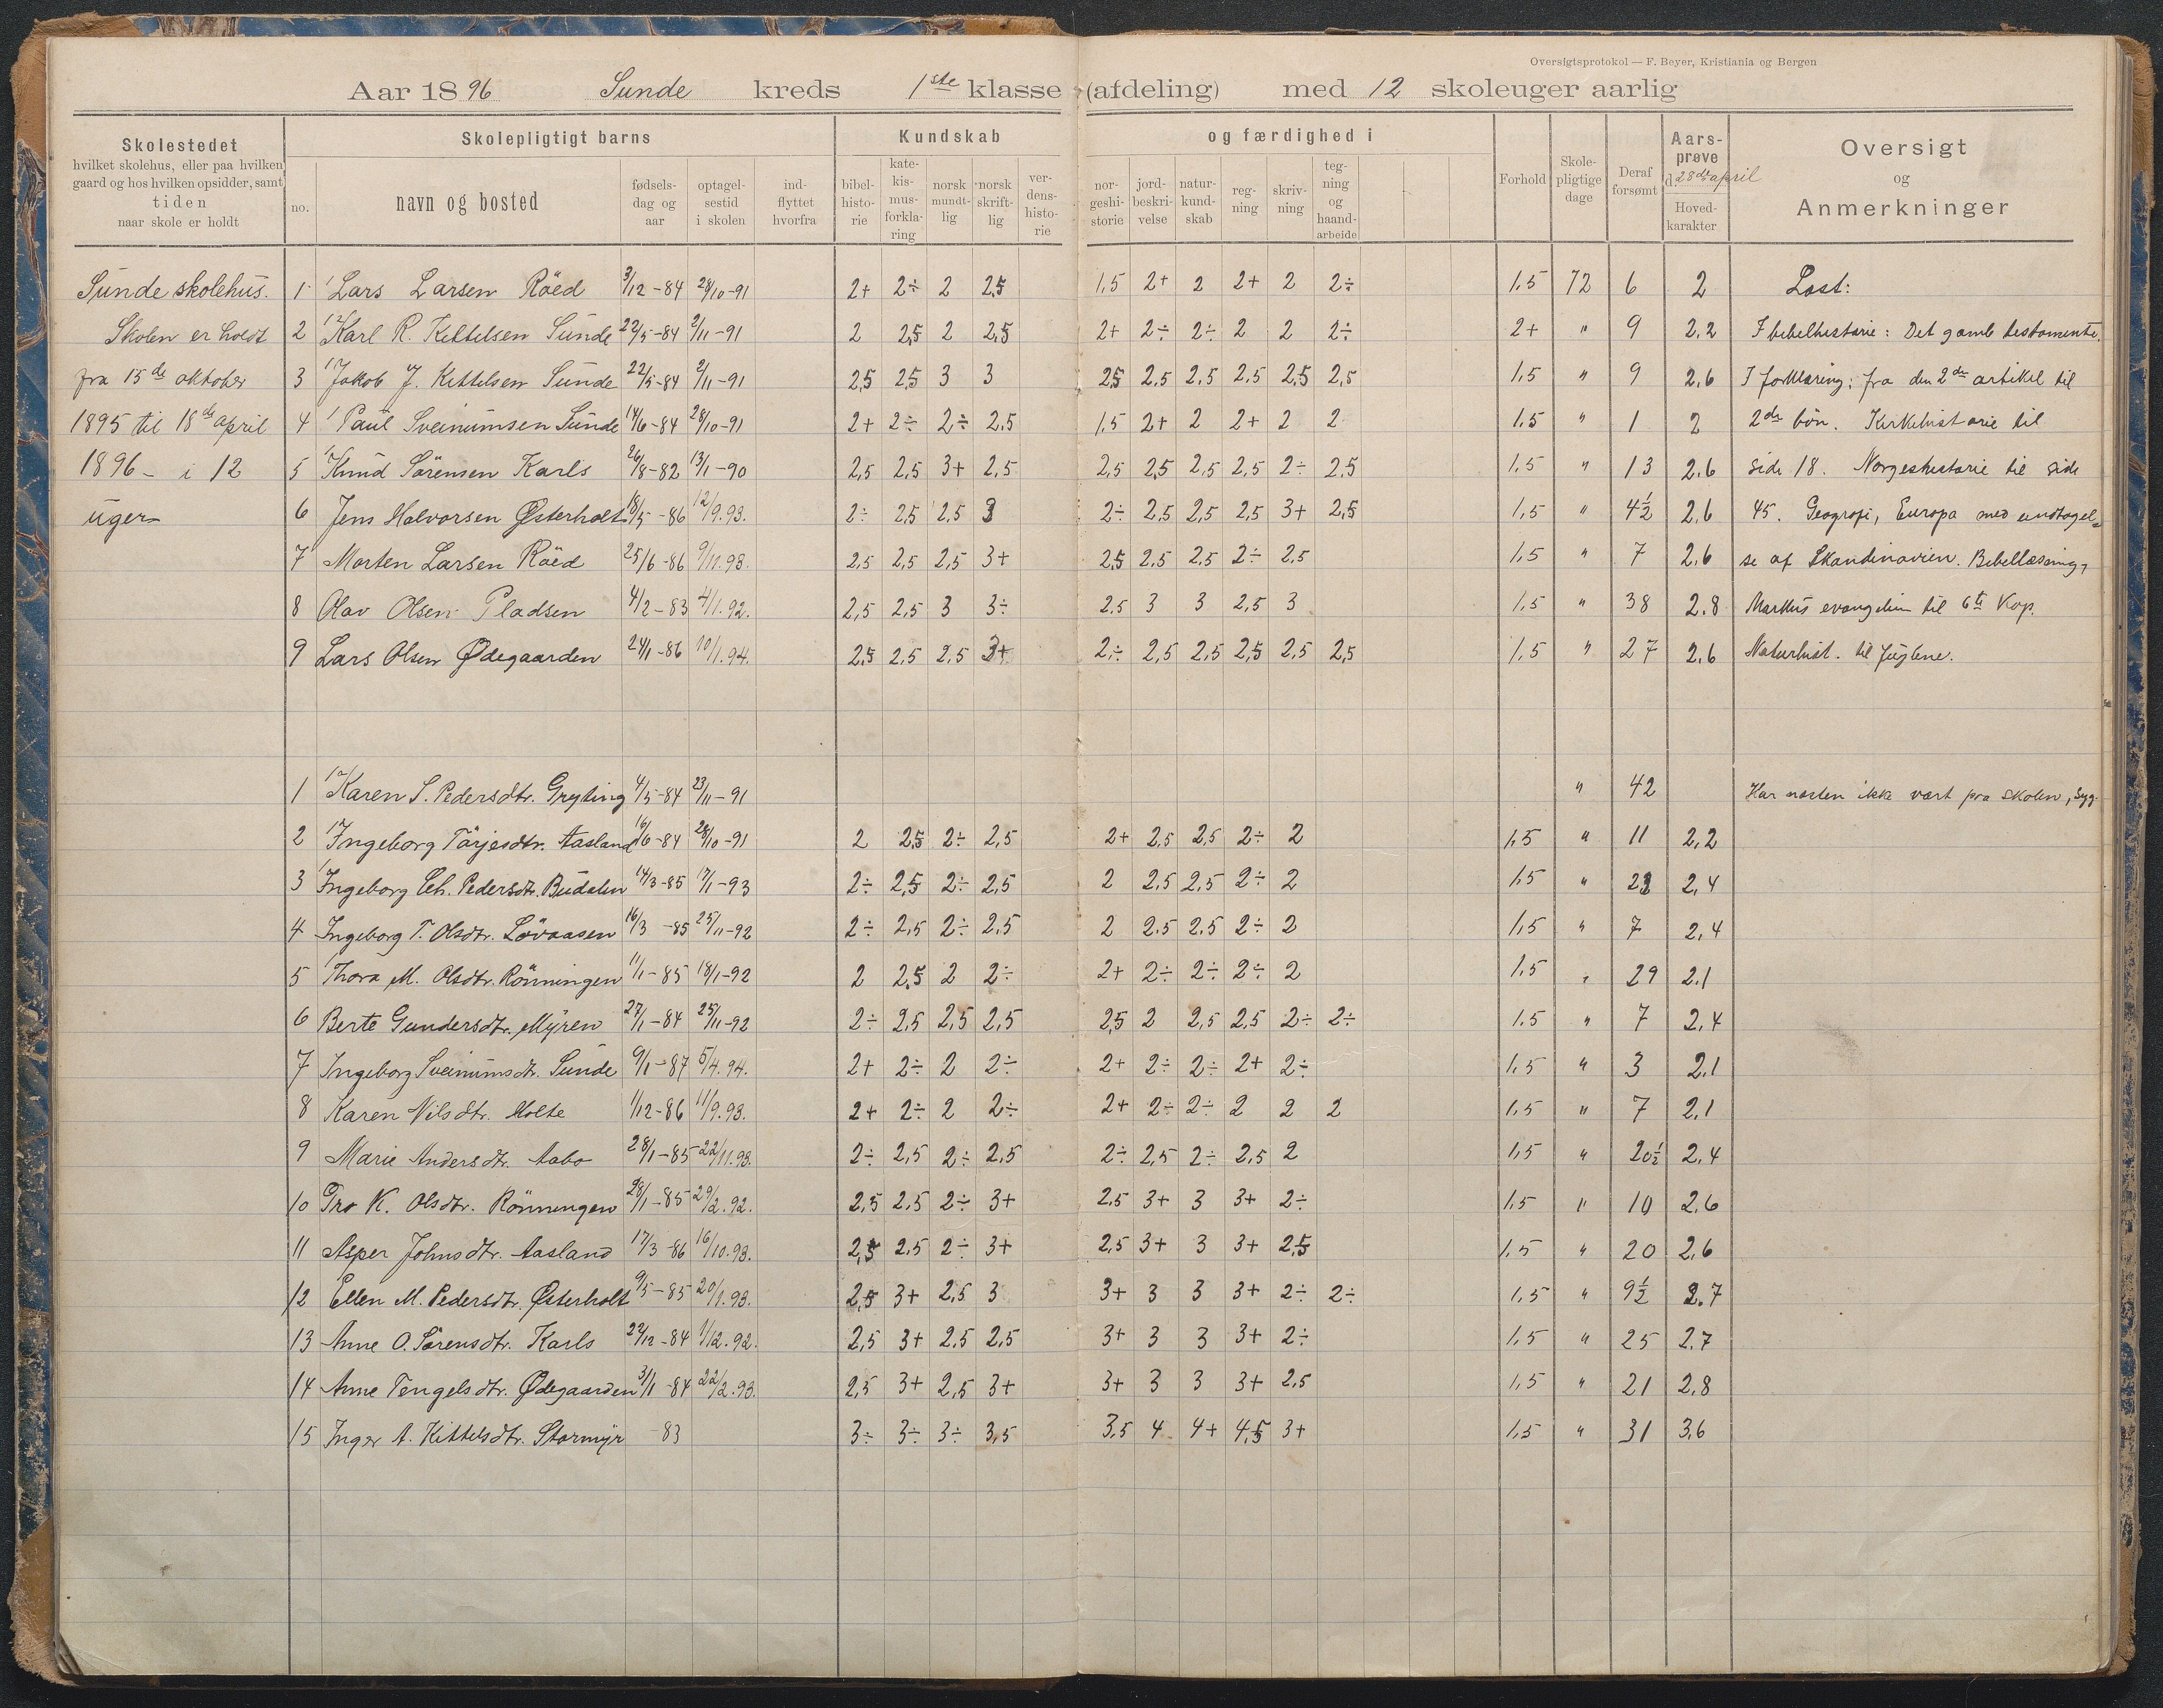 Oversigtsprotokol — F. Beyer, Kristiania og Bergen
Aar 1896 Sunde kreds 1ste klasse (afdeling) med 12 skoleuger aarlig
Skolestedet
hvilket skolehus, eller paa hvilken
gaard og hos hvilken opsidder, samt
tiden
naar skole er holdt
Skolepligtigt barns
no.
navn og bosted
fødsels-
dag og
aar
optagel-
sestid
i skolen
ind-
flyttet
hvorfra
Kundskab og færdighed i
bibel-
histo-
rie
kate-
kis-
mus-
forkla-
ring
norsk
mundt-
lig
norsk
skrift-
lig
ver-
dens-
histo-
rie
nor-
geshi-
storie
jord-
beskri-
velse
natur-
kund-
skab
reg-
ning
skriv-
ning
teg-
ning
og
haand-
arbeide
Forhold
Skole-
pligtige
dage
Deraf
forsømt
Aars-
prøve
d. 28de april
Hoved-
karakter
Oversigt
og
Anmerkninger
Sunde skolehus.
Skolen er holdt
fra 15de oktober
1895 til 18de april
1896 - i 12
uger
1 Lars Larsen Röed 3/12-84 28/10-91 2+ 2÷ 2 2,5 1,5 2+ 2 2+ 2 2÷ 1,5 72 6 2 Läst:
2 Karl R. Kettelsen Sunde 22/5-84 2/11-91 2 2,5 2 2,5 2+ 2÷ 2÷ 2 2 2÷ 2+ " 9 2,2 I bibelhistorie: Det gamle testamente.
3 Jakob J. Kittelsen Sunde 22/5-84 2/11-91 2,5 2,5 3 3 2,5 2,5 2,5 2,5 2,5 2,5 1,5 " 9 2,6 I forklaring: fra den 2den artikel til
4 Paul Sveinumsen Sunde 14/6-84 28/10-91 2+ 2÷ 2÷ 2,5 1,5 2+ 2 2+ 2 2 1,5 " 1 2 2den bön. Kirkehistorie til
5 Knud Sörensen Karls 26/8-82 13/1-90 2,5 2,5 3+ 2,5 2,5 2,5 2,5 2,5 2÷ 2,5 1,5 " 13 2,6 side 18. Norgeshistorie til side
6 Jens Halvorsen Østerholt 18/5-86 12/9.93. 2÷ 2,5 2,5 3 2÷ 2,5 2,5 2,5 3+ 2,5 1,5 " 4½ 2,6 45. Geografi, Europa med undtagel-
7 Morten Larsen Röed 25/6-86 9/11.93. 2,5 2,5 2,5 3+ 2,5 2,5 2,5 2÷ 2,5 1,5 " 7 2,6 se af Skandinavien. Bibellæsning,
8 Olav Olsen Pladsen 4/2-83 4/1.92. 2,5 2,5 3 3÷ 2,5 3 3 2,5 3 1,5 " 38 2,8 Markus evangelium til 6te Kap.
9 Lars Olsen Ødegaarden 24/1-86 10/1.94. 2,5 2,5 2,5 3+ 2÷ 2,5 2,5 2,5 2,5 2,5 1,5 " 27 2,6 Naturhist. til fuglene.
1 Karen S. Pedersdtr. Gryting 4/5-84 23/11-91 " 42 Har næsten ikke vært pra skolen, syg.
2 Ingeborg Tärjesdtr. Aasland 16/6-84 28/10-91 2 2,5 2÷ 2,5 2+ 2,5 2,5 2÷ 2 1,5 " 11 2,2
3 Ingeborg Ch. Pedersdtr. Budalen 14/3-85 17/1-93 2÷ 2,5 2÷ 2,5 2 2,5 2,5 2÷ 2 1,5 " 2,4
4 Ingeborg T. Olsdtr. Lövaasen 16/3-85 25/11-92 2÷ 2,5 2÷ 2,5 2 2,5 2,5 2÷ 2 1,5 " 7 2,4
5 Thora M. Olsdtr. Rönningen 11/1-85 18/1-92 2 2,5 2 2÷ 2+ 2÷ 2÷ 2÷ 2 1,5 " 29 2,1
6 Berte Gundersdtr. Myren 27/1-84 25/11-92 2÷ 2,5 2,5 2,5 2,5 2 2,5 2,5 2÷ 2÷ 1,5 " 7 2,4
7 Ingeborg Sveinumsdtr. Sunde 9/1-87 5/4.94. 2+ 2÷ 2 2÷ 2+ 2÷ 2÷ 2+ 2÷ 1,5 " 3 2,1
8 Karen Nilsdtr. Holte 1/12-86 11/9.93. 2+ 2÷ 2 2÷ 2+ 2÷ 2÷ 2 2 2 1,5 " 7 2,1
9 Marie Andersdtr. Aabo 28/1-85 22/11.93. 2÷ 2,5 2÷ 2,5 2÷ 2,5 2÷ 2,5 2 1,5 " 20½ 2,4
10 Tro K. Olsdtr. Rönningen 28/1-85 29/2.92. 2,5 2,5 2÷ 3+ 2,5 3+ 3 3+ 2÷ 1,5 " 10 2,6
11 Asper Johnsdtr. Aasland 17/3-86 16/10.93. 2,5 2,5 2÷ 3+ 2,5 3+ 3 3+ 2,5 1,5 " 20 2,6
12 Ellen M. Pedersdtr. Østerholt 9/5-85 20/1.93. 2,5 3+ 2,5 3 3+ 3 3 3+ 2÷ 2÷ 1,5 " 9½ 2,7
13 Anne O. Sörensdtr. Karls 22/12-84 1/12.92. 2,5 3+ 2,5 2,5 3+ 3 3 3+ 2÷ 1,5 " 25 2,7
14 Anne Tengelsdtr. Ødegaarden 3/1-84 22/2.93. 2,5 3+ 2,5 3+ 3+ 3 3 3+ 2,5 1,5 " 21 2,8
15 Inger A. Kittelsdtr. Stormyr 83 3÷ 3÷ 3÷ 3,5 3,5 4 4+ 4,5 3+ 1,5 " 31 3,6